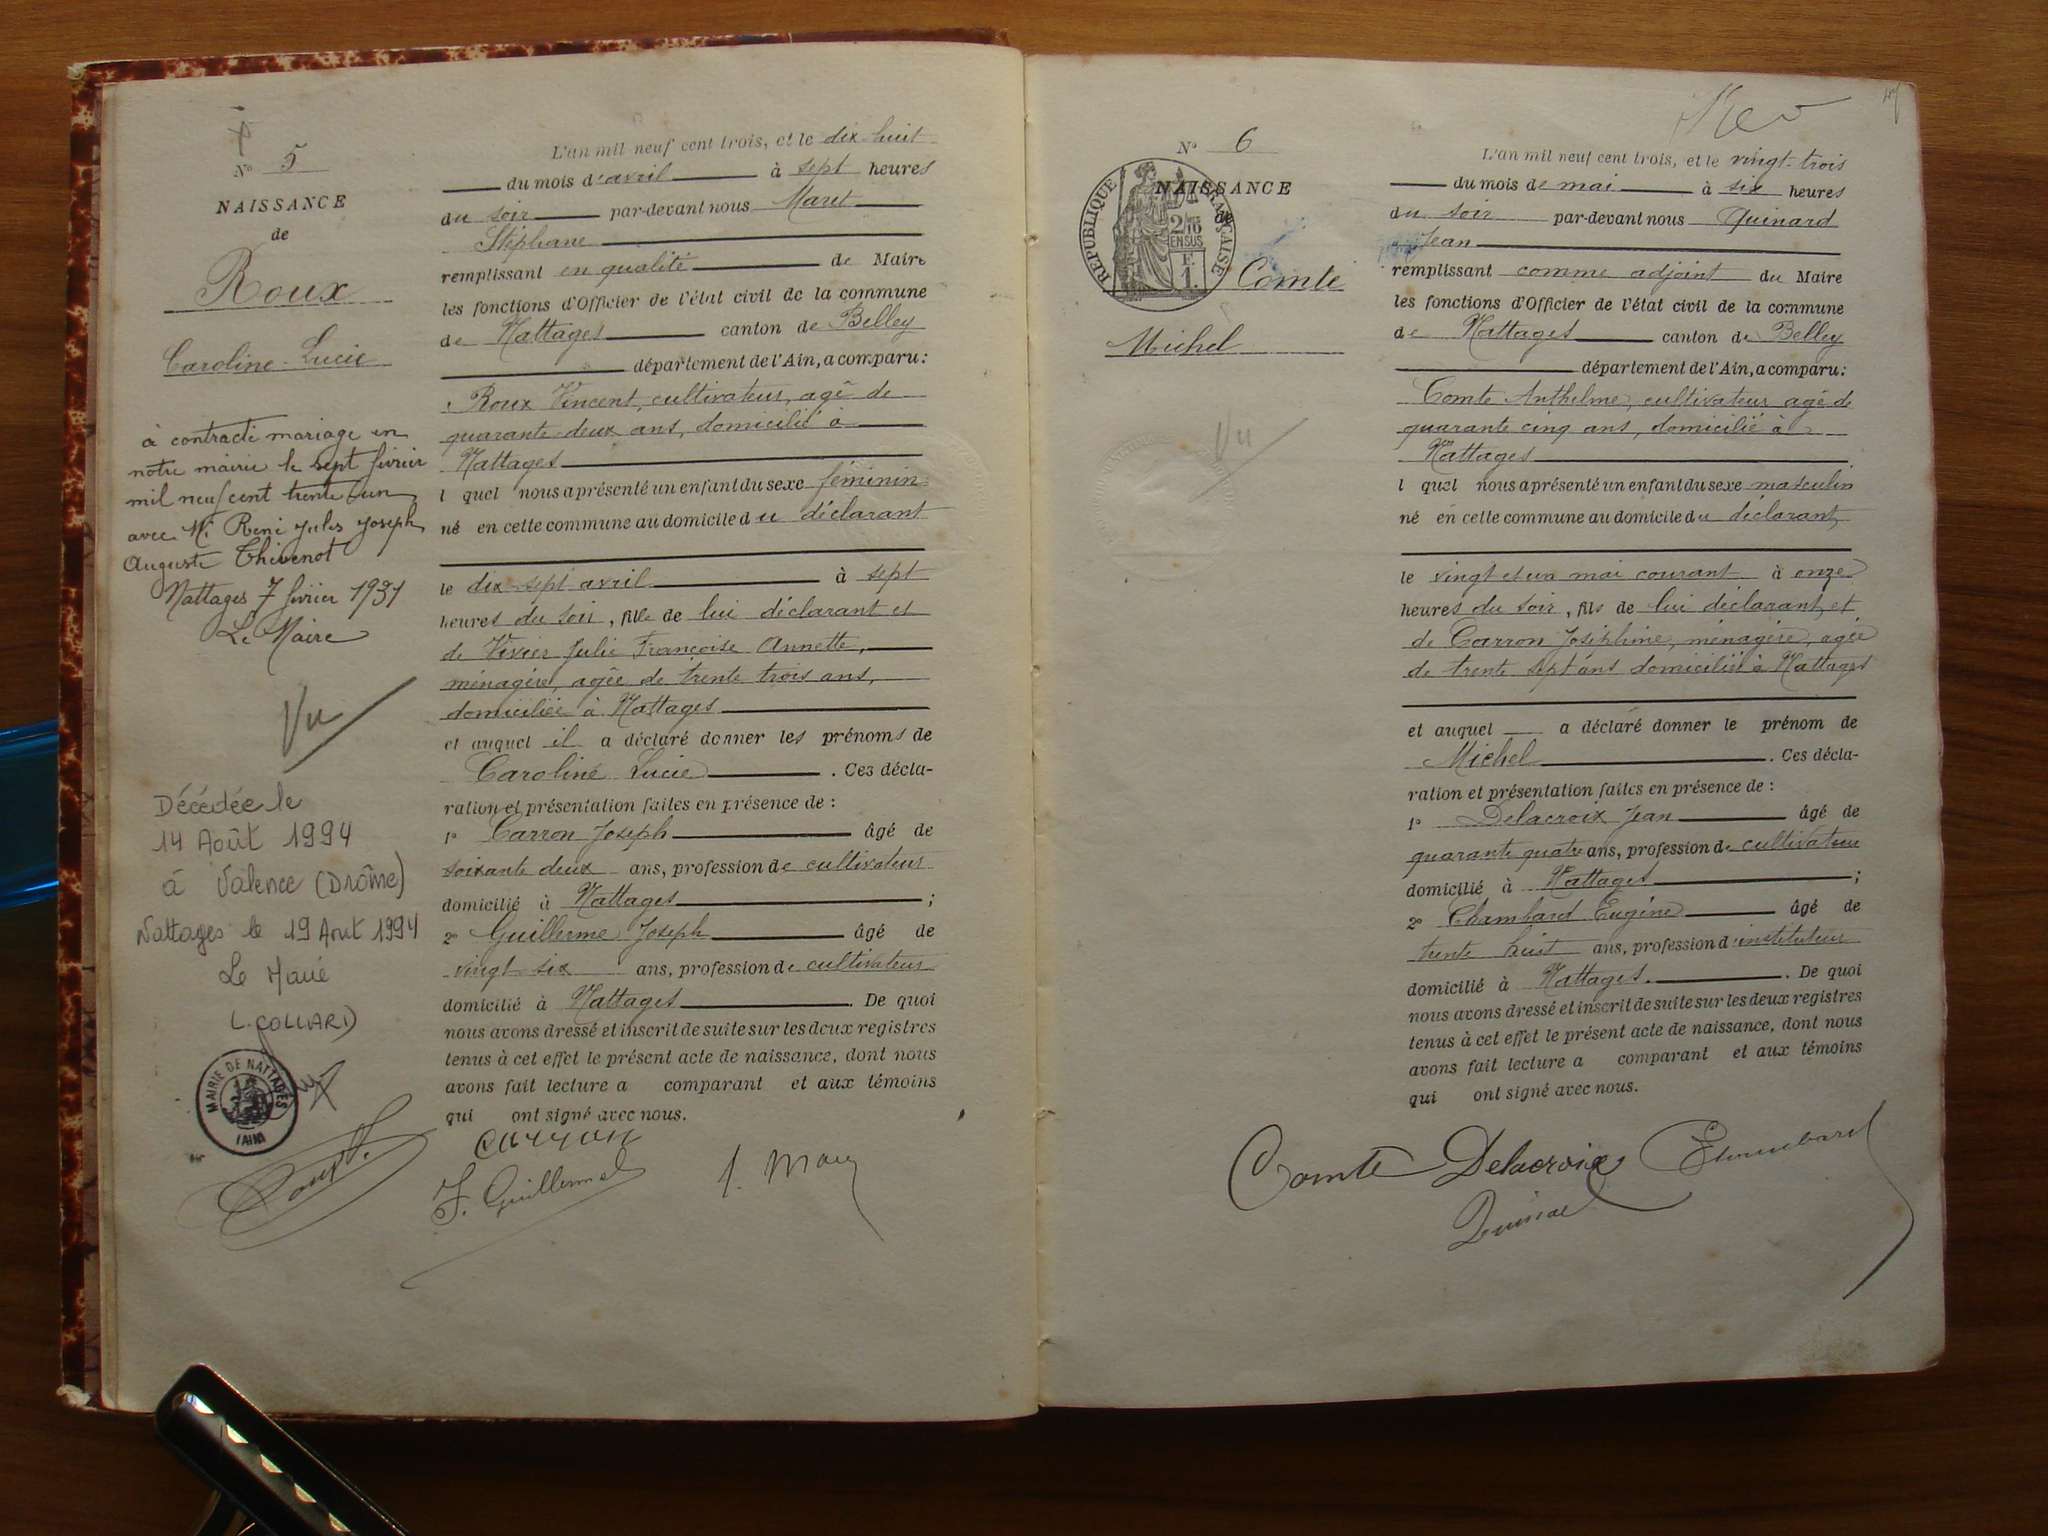 N° 5
NAISSANCE
de
Roux
Caroline-Lucie
à contracté mariage en
notre mairie le sept février
mil neuf cent trente un
avec Mr René Jules Joseph
Auguste Thivenot
Nattages 7 février 1931
Le Maire
Vu
Décédée le
14 Août 1994
à Valence (Drôme)
Nattages le 19 Aout 1994
Le Maire
L. COLLARD
MAIRIE DE NATTAGES
(AIN)
L'an mil neuf cent trois, et le dix-huit
du mois d'avril à sept heures
du soir par-devant nous Maret
Stéphane
remplissant en qualité de Maire
les fonctions d'Officier de l'état civil de la commune
de Nattages canton de Belley
département de l'Ain, a comparu:
Roux Vincent, cultivateur, agé de
quarante-deux ans, domicilié à
Nattages
l quel nous a présenté un enfant du sexe féminin
né en cette commune au domicile du déclarant
le dix-sept avril à sept
heures du soir, fille de lui déclarant et
de Vivier Julie Françoise Annette,
ménagère, agée de trente trois ans,
domiciliée à Nattages
et auquel il a déclaré donner les prénoms de
Caroline Lucie. Ces décla-
ration et présentation faites en présence de:
1° Carron Joseph âgé de
soixante deux ans, profession de cultivateur
domicilié à Nattages;
2° Guillerme Joseph âgé de
vingt six ans, profession de cultivateur
domicilié à Nattages. De quoi
nous avons dressé et inscrit de suite sur les deux registres
tenus à cet effet le présent acte de naissance, dont nous
avons fait lecture a comparant et aux témoins
qui ont signé avec nous.
Roux V. Carron
J. Guillermet
N° 6
NAISSANCE
de
RÉPUBLIQUE FRANÇAISE
2/10
EN SUS
F.
1.
Comte
Michel
Vu
L'an mil neuf cent trois, et le vingt-trois
du mois de mai à six heures
du soir par-devant nous Quinard
Jean
remplissant comme adjoint du Maire
les fonctions d'Officier de l'état civil de la commune
de Nattages canton de Belley
département de l'Ain, a comparu:
Comte Anthelme, cultivateur agé de
quarante cinq ans, domicilié à
Nattages
l quel nous a présenté un enfant du sexe masculin
né en cette commune au domicile du déclarant,
le vingt et un mai courant à onze
heures du soir, fils de lui déclarant, et
de Carron Joséphine, ménagère, agée
de trente sept ans domiciliée à Nattages
et auquel a déclaré donner le prénom de
Michel. Ces décla-
ration et présentation faites en présence de:
1° Delacroix Jean âgé de
quarante quatre ans, profession de cultivateur
domicilié à Nattages;
2° Chambard Eugène âgé de
trente huit ans, profession d'instituteur
domicilié à Nattages. De quoi
nous avons dressé et inscrit de suite sur les deux registres
tenus à cet effet le présent acte de naissance, dont nous
avons fait lecture a comparant et aux témoins
qui ont signé avec nous.
Comte Delacroix Chambard
Quinard